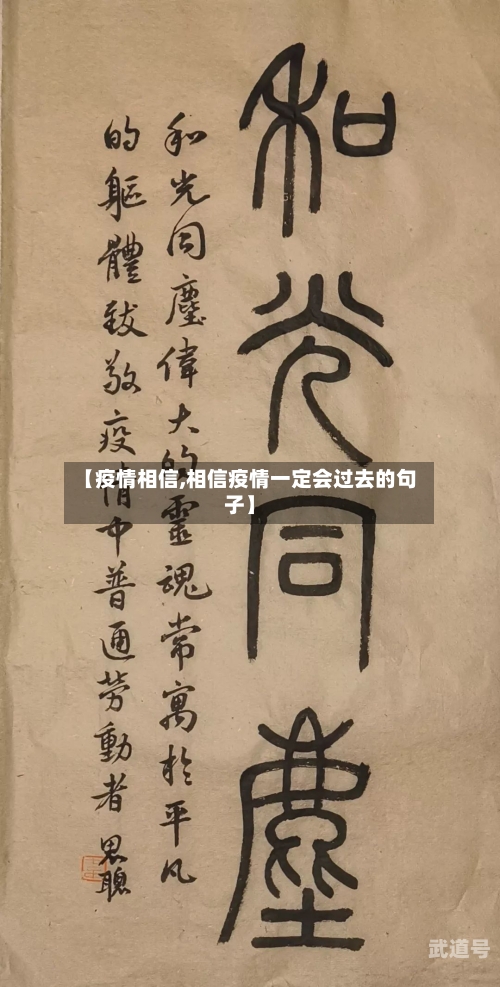 和光同塵
和光同塵偉大的靈魂常寓於平凡
的軀體致敬疫情中普通勞動者 思聰
【疫情相信,相信疫情一定会过去的句
子】
武道号